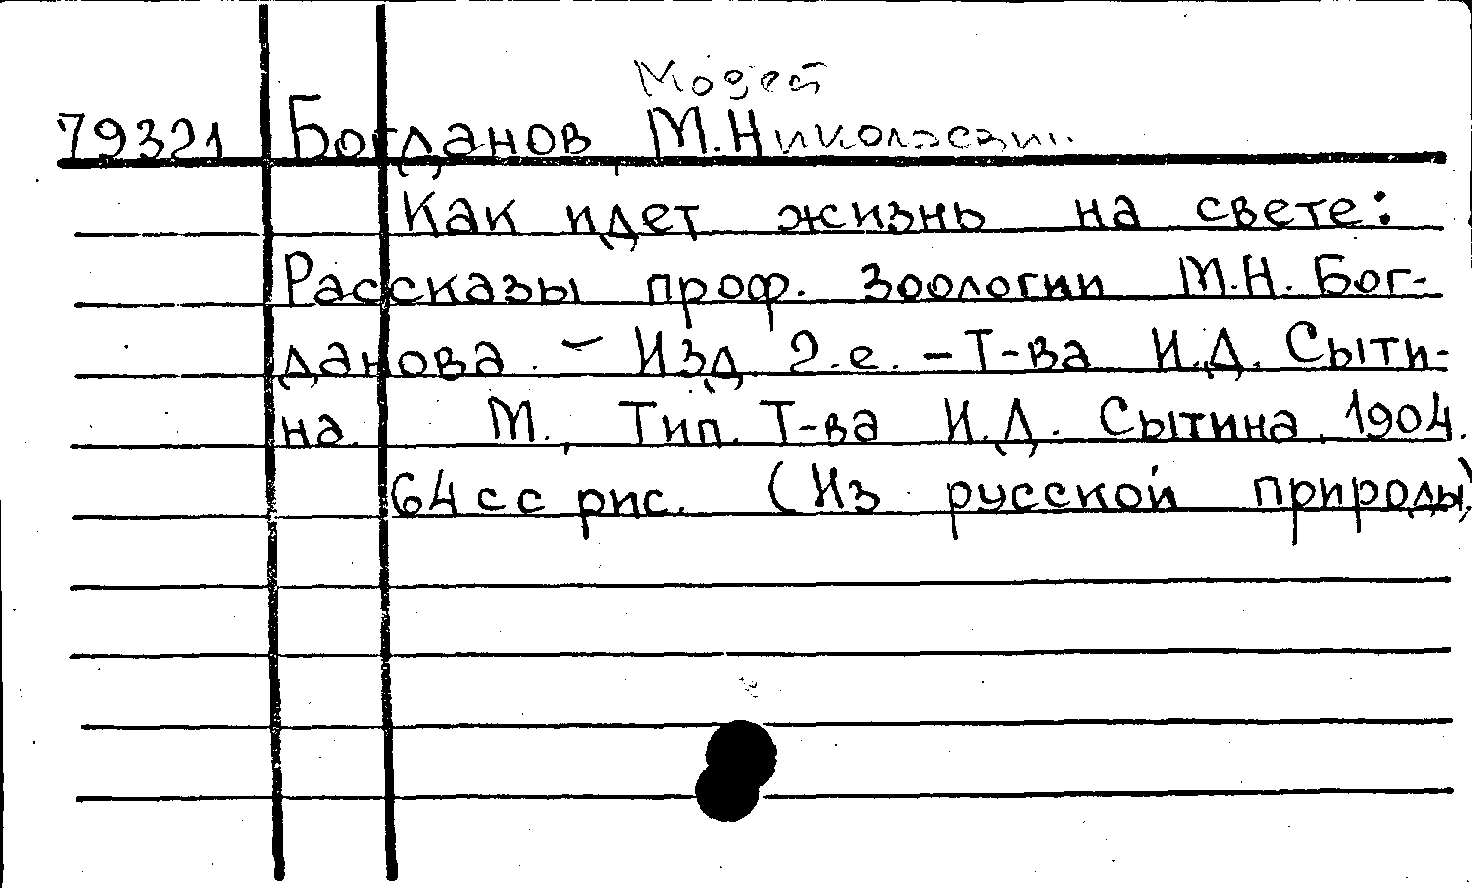 Модест
79321 Богданов, М. Николаевич
Как идет жизнь на свете:
Рассказы проф. зоологии М.Н. Бог-
данова. - Изд. 2.е. - Т-ва И.Д. Сыти-
на. М., Тип. Т-ва И.Д. Сытина, 1904.
64 с с рис. (Из русской природы)